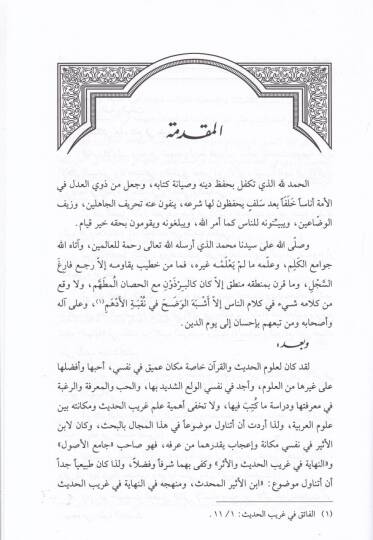 المقدمة
الحمد لله الذي تكفل بحفظ دينه وصيانة كتابه، وجعل من ذوي العدل في
الأمة أناساً خَلَفاً بعد سَلفٍ يحفظون لها شرعه، ينفون عنه تحريف الجاهلين، وزيف
الوضّاعين، ويبيّنونه للناس كما أمر الله، ويبلغونه ويقومون بحقه خير قيام.
وصلّى الله على سيدنا محمد الذي أرسله الله تعالى رحمة للعالمين، وآتاه الله
جوامع الكَلِم، وعلّمه ما لم يَعْلَمْه غيره، فما من خطيب يقاومه إلاّ رجع فارغَ
السَّجْلِ، وما قرن بمنطقه منطق إلاّ كان كالبِرْذَوْنِ مع الحصان المُطَهَّم، ولا وقع
من كلامه شيء في كلام الناس إلاّ أَشْبَهَ الوَضَحَ في نُقْبَةِ الأَدْهَمِ(١)، وعلى آله
وأصحابه ومن تبعهم بإحسان إلى يوم الدين.
وبعد:
لقد كان لعلوم الحديث والقرآن خاصة مكان عميق في نفسي، أحبها وأفضلها
على غيرها من العلوم، وأجد في نفسي الولع الشديد بها، والحب والمعرفة والرغبة
في معرفتها ودراسة ما كُتِبَ فيها، ولا تخفى أهمية علم غريب الحديث ومكانته بين
علوم العربية، ولذا أردت أن أتناول موضوعاً في هذا المجال بالبحث، وكان لابن
الأثير في نفسي مكانة وإعجاب يقدرهما من عرفه، فهو صاحب «جامع الأصول»
و«النهاية في غريب الحديث والأثر» وكفى بهما شرفاً وفضلاً، ولذا كان طبيعياً جداً
أن أتناول موضوع: «ابن الأثير المحدث، ومنهجه في النهاية في غريب الحديث
(١) الفائق في غريب الحديث: ١ / ١١.